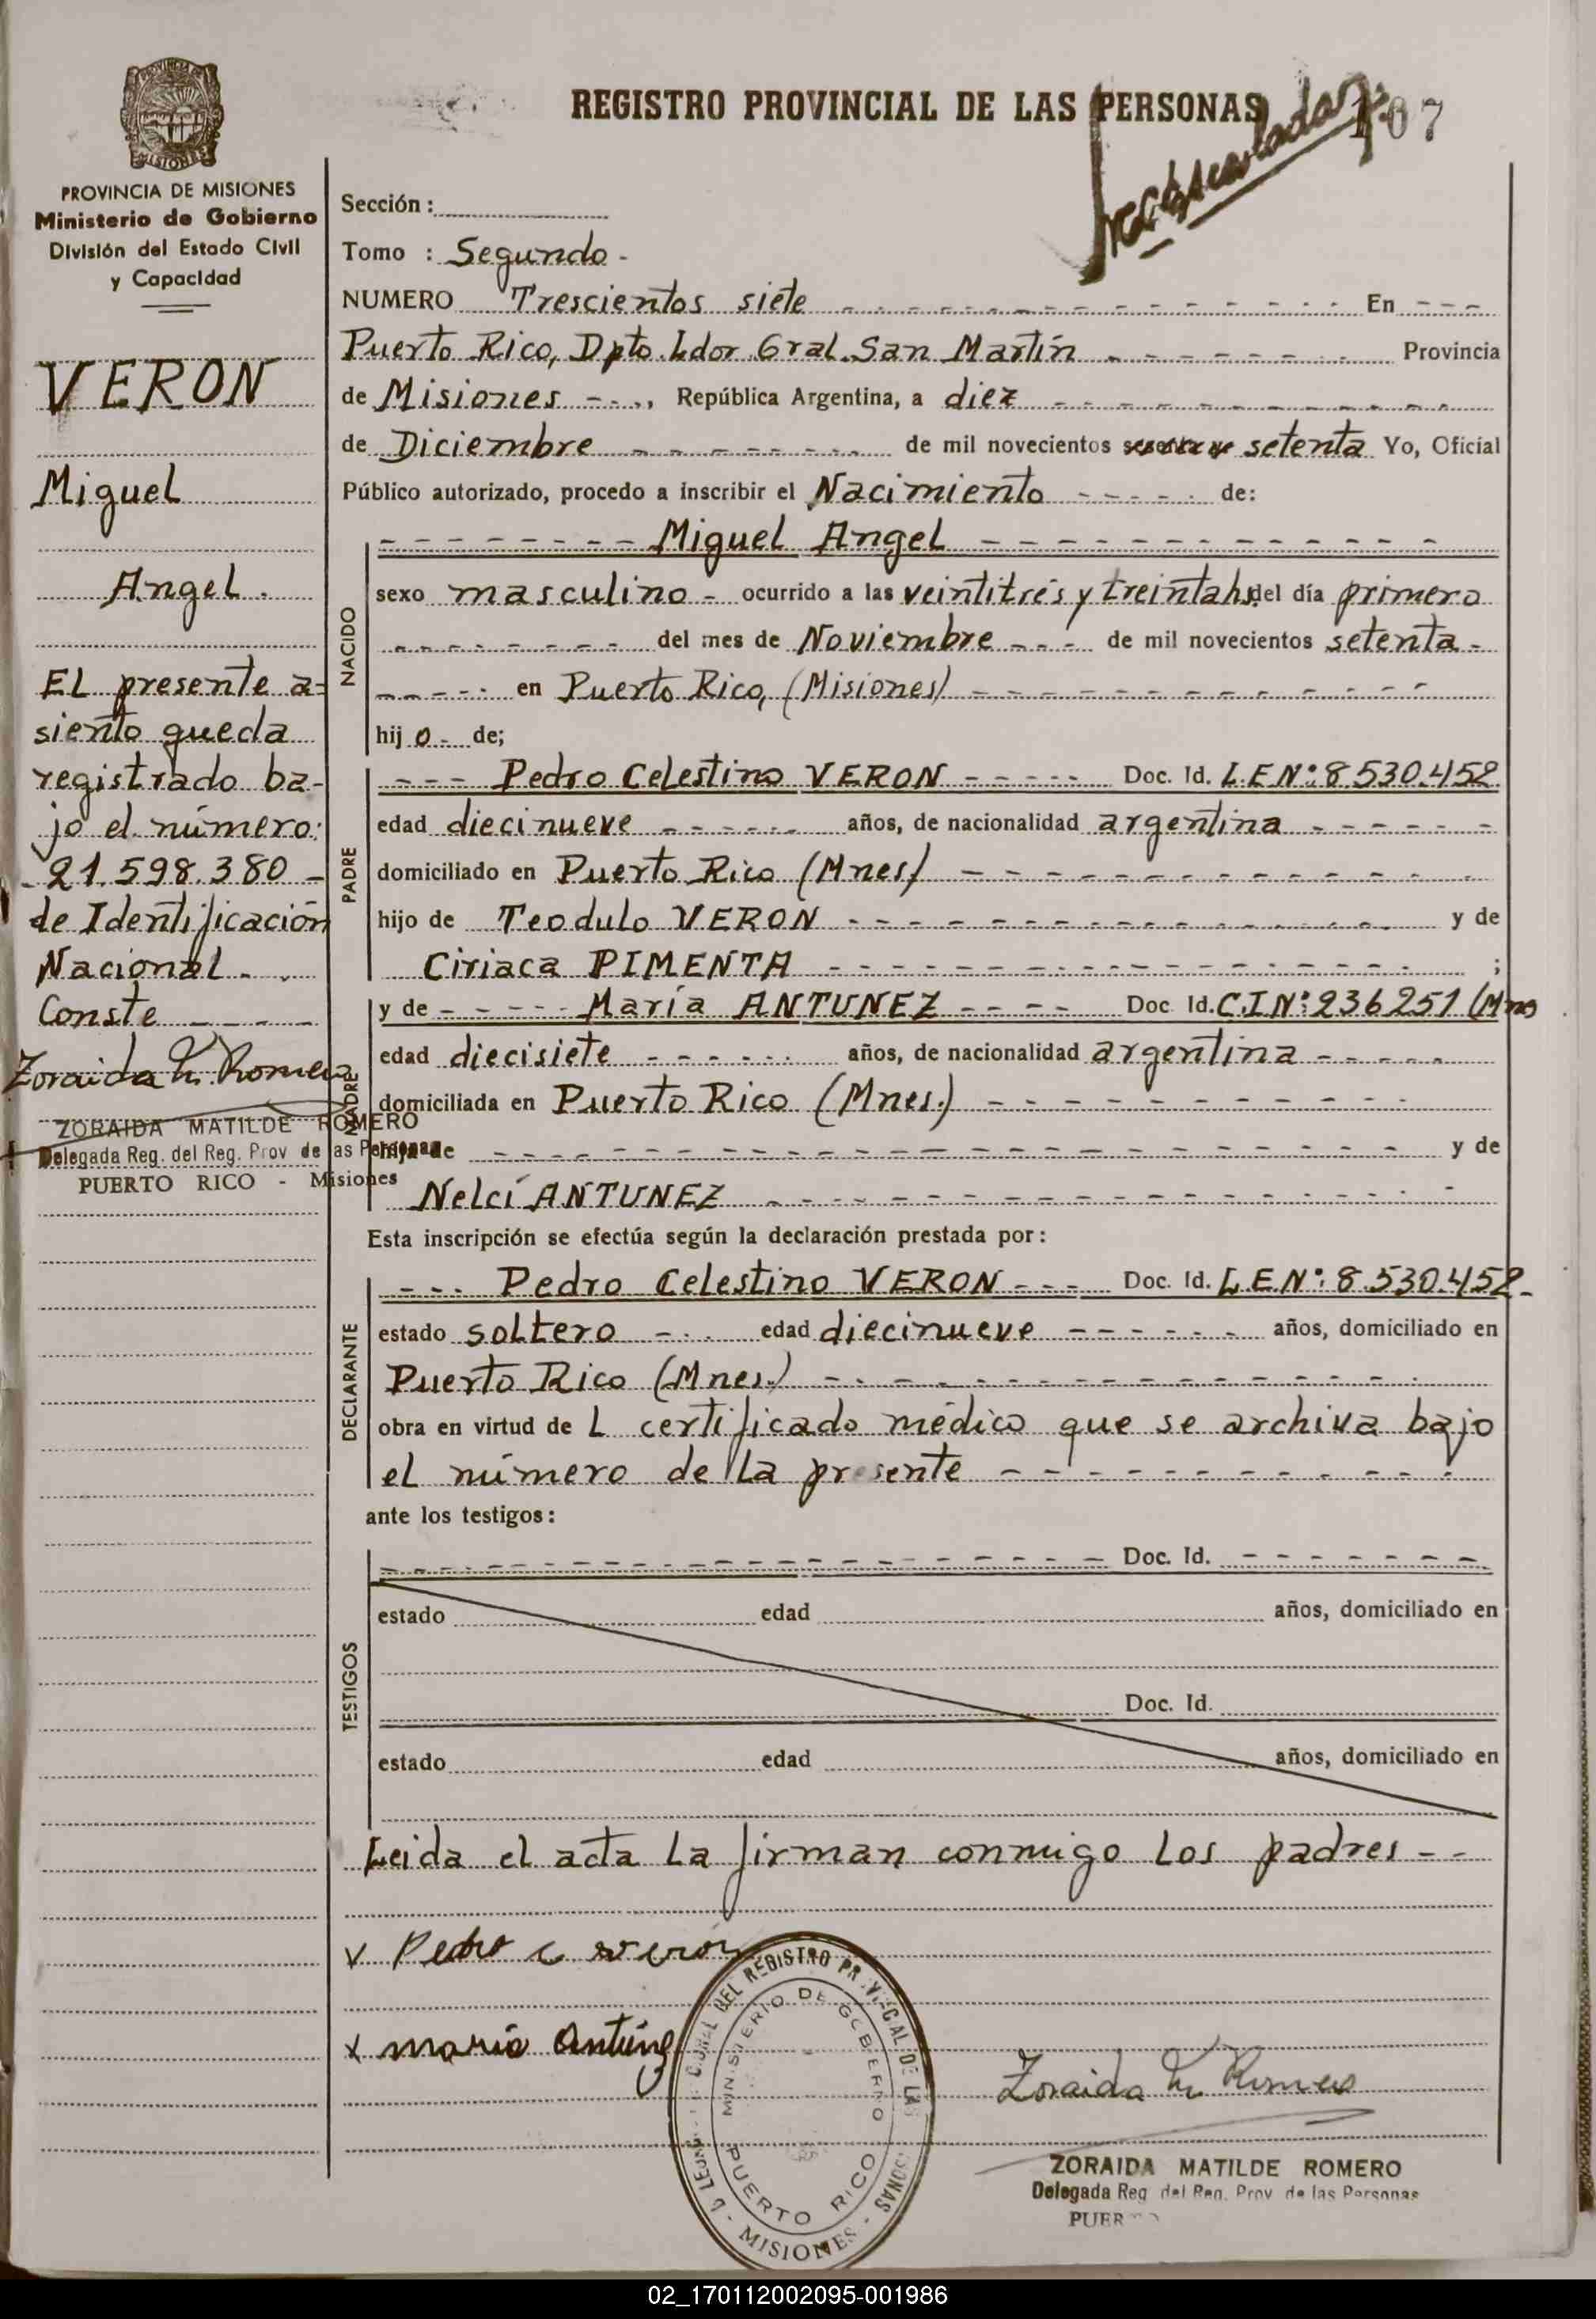 REGISTRO PROVINCIAL DE LAS PERSONAS
107
MISIONES
PROVINCIA DE MISIONES
Ministerio de Gobierno
División del Estado Civil
y Capacidad
VERON
Miguel
Angel.
EL presente a=
siento queda
registrado ba-
jo el número:
-21.598.380-
de Identificación
Nacional-.
Conste
Zoraida M. Romero
ZORAIDA MATILDE ROMERO
Delegada Reg. del Reg. Prov de las Personas
PUERTO RICO - Misiones
Sección:
Tomo : Segundo-
NUMERO Trescientos siete En
Puerto Rico, Dpto. Ldor Gral. San Martín Provincia
de Misiones, República Argentina, a diez
de Diciembre de mil novecientos setenta Yo, Oficial
Público autorizado, procedo a inscribir el Nacimiento de:
NACIDO
Miguel Angel
sexo masculino - ocurrido a las veintitrés y treinta hs. del día primero
del mes de Noviembre de mil novecientos setenta-
en Puerto Rico, (Misiones)
hijo- de;
PADRE
Pedro Celestino VERON Doc. Id. L.E.Nº:8.530.452
edad diecinueve años, de nacionalidad argentina
domiciliado en Puerto Rico (Mnes)
hijo de Teodulo VERON y de
Ciriaca PIMENTA ;
MADRE
y de María ANTUNEZ Doc. Id. C.I.Nº:236251 (Mnes
edad diecisiete años, de nacionalidad argentina
domiciliada en Puerto Rico (Mnes.)
hija de y de
Nelcí ANTUNEZ
Esta inscripción se efectúa según la declaración prestada por:
DECLARANTE
Pedro Celestino VERON Doc. Id. L.E.Nº: 8.530.452-
estado soltero edad diecinueve años, domiciliado en
Puerto Rico (Mnes.)
obra en virtud de L certificado médico que se archiva bajo
el número de la presente
ante los testigos:
TESTIGOS
Doc. Id.
estado edad años, domiciliado en
Doc. Id.
estado edad años, domiciliado en
Leida el acta la firman conmigo los padres
x Pedro C Verón
x maria Antúnez
DEL REGISTRO PROVINCIAL DE LAS PERSONAS - MISIONES
MINISTERIO DE GOBIERNO
PUERTO RICO
Zoraida M. Romero
ZORAIDA MATILDE ROMERO
Delegada Reg del Reg. Prov de las Personas
PUER
02_170112002095-001986